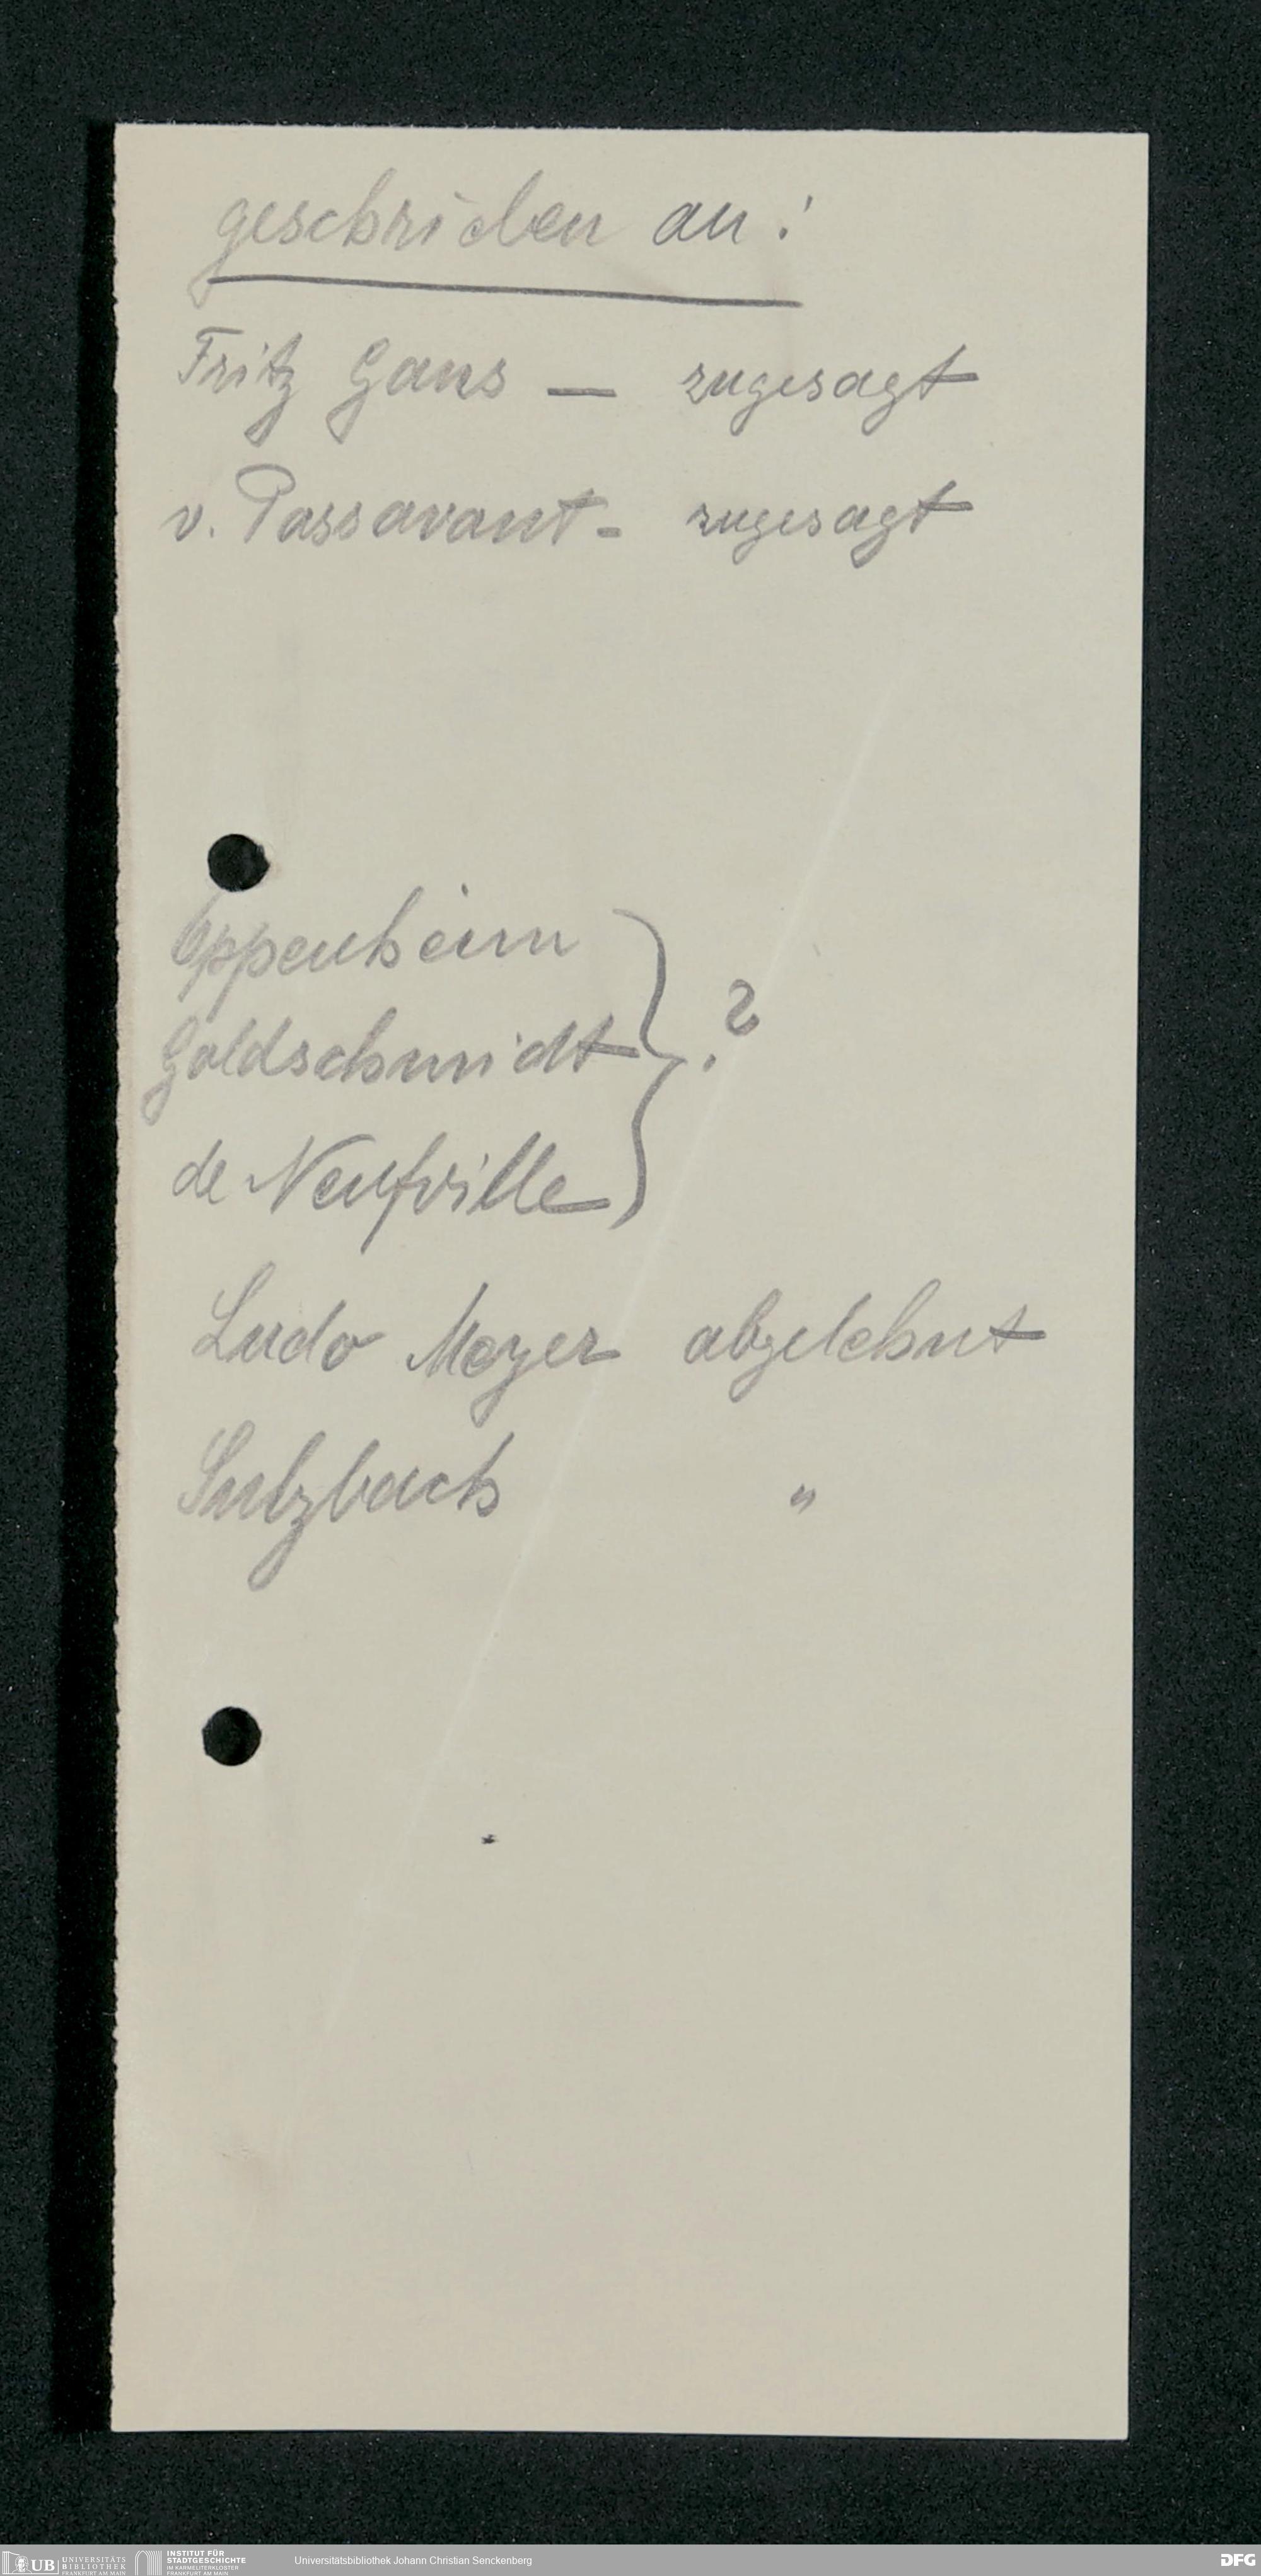 geschrieben an:
Fritz Gans — zugesagt
v. Passavant - zugesagt
Oppenheim
Goldschmidt } ?
de Neufville
Ludo Meyer abgelehnt
Sulzbach "
UB UNIVERSITÄTS BIBLIOTHEK FRANKFURT AM MAIN
INSTITUT FÜR STADTGESCHICHTE IM KARMELITERKLOSTER FRANKFURT AM MAIN
Universitätsbibliothek Johann Christian Senckenberg
DFG